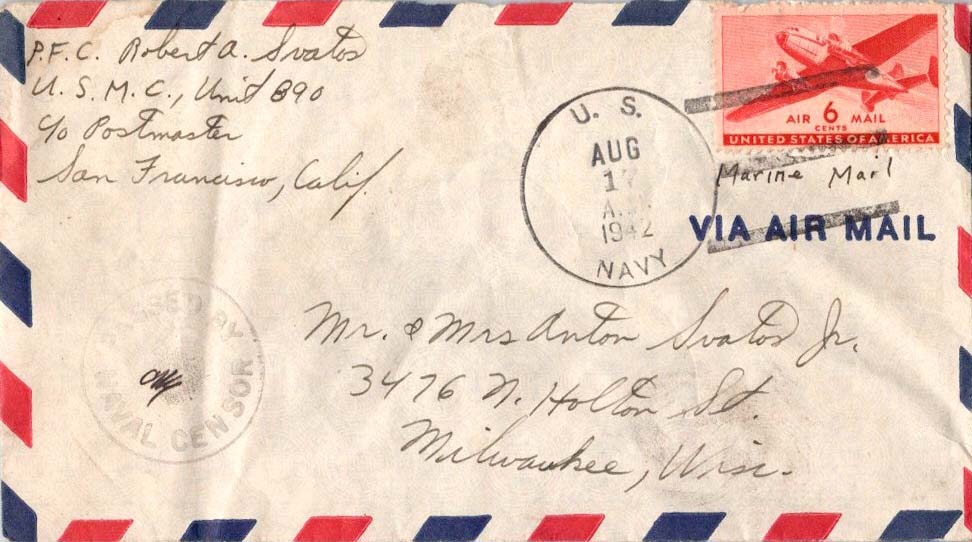 P.F.C. Robert A. Svatos
U.S.M.C., Unit 890
c/o Postmaster
San Francisco, Calif.
U. S.
AUG
17
A.M.
1942
NAVY
AIR 6 MAIL
CENTS
UNITED STATES OF AMERICA
Marine Mail
VIA AIR MAIL
PASSED BY
NAVAL CENSOR
Mr. & Mrs Anton Svatos Jr.
3476 N. Holton St.
Milwaukee, Wisc.